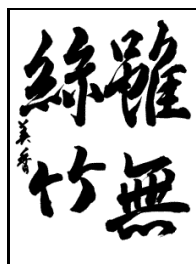 雖無
絲竹
美香